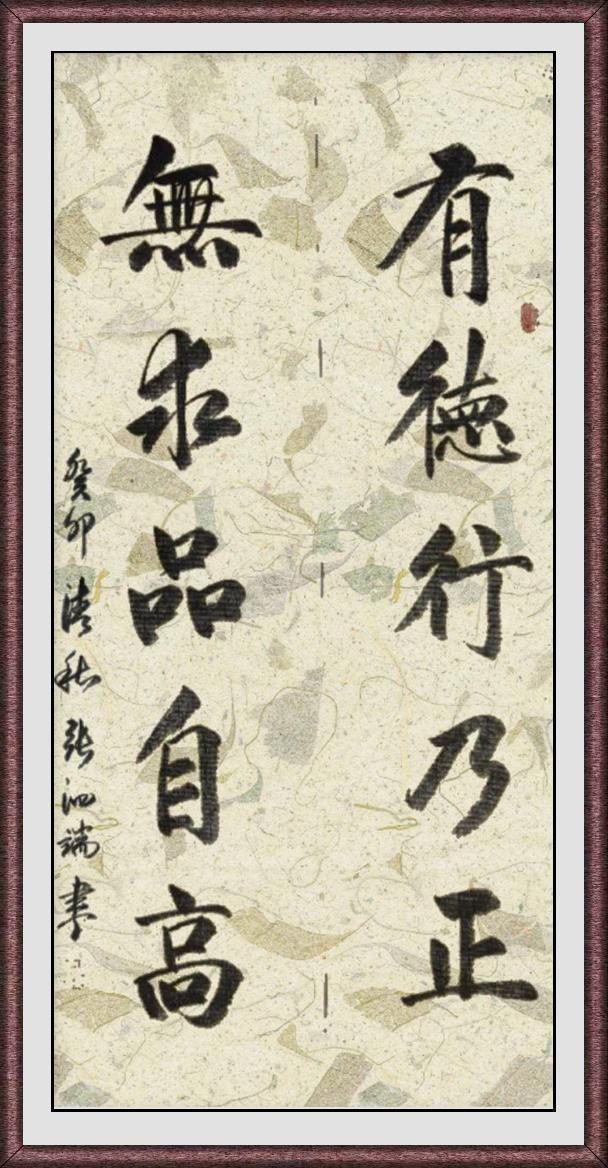 有德行乃正
無求品自高
癸卯清秋張泗端書